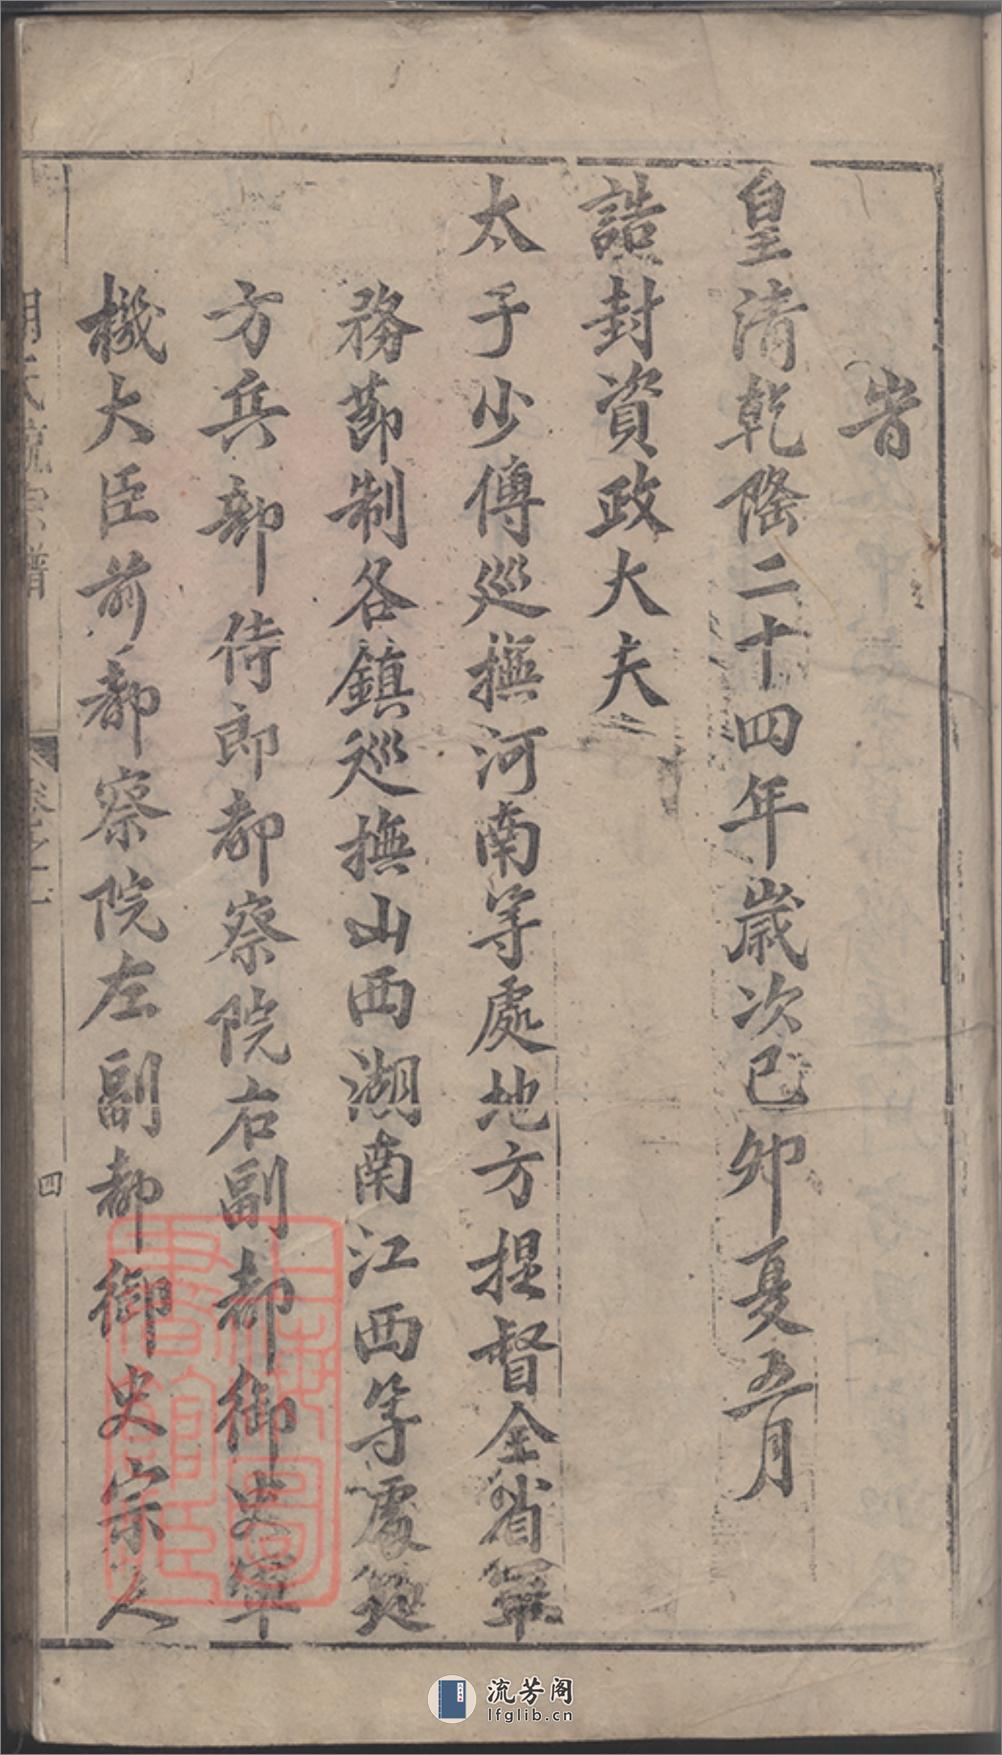 岩
皇清乾隆二十四年歲次己卯夏五月
誥封資政大夫
太子少傅巡撫河南等處地方提督全省軍
務節制各鎮巡撫山西湖南江西等處地
方兵部侍郎都察院右副都御史軍
機大臣前都察院左副都御史宗人
胡氏宗譜
卷之一
四
上海圖書館藏
流芳阁
lfglib.cn